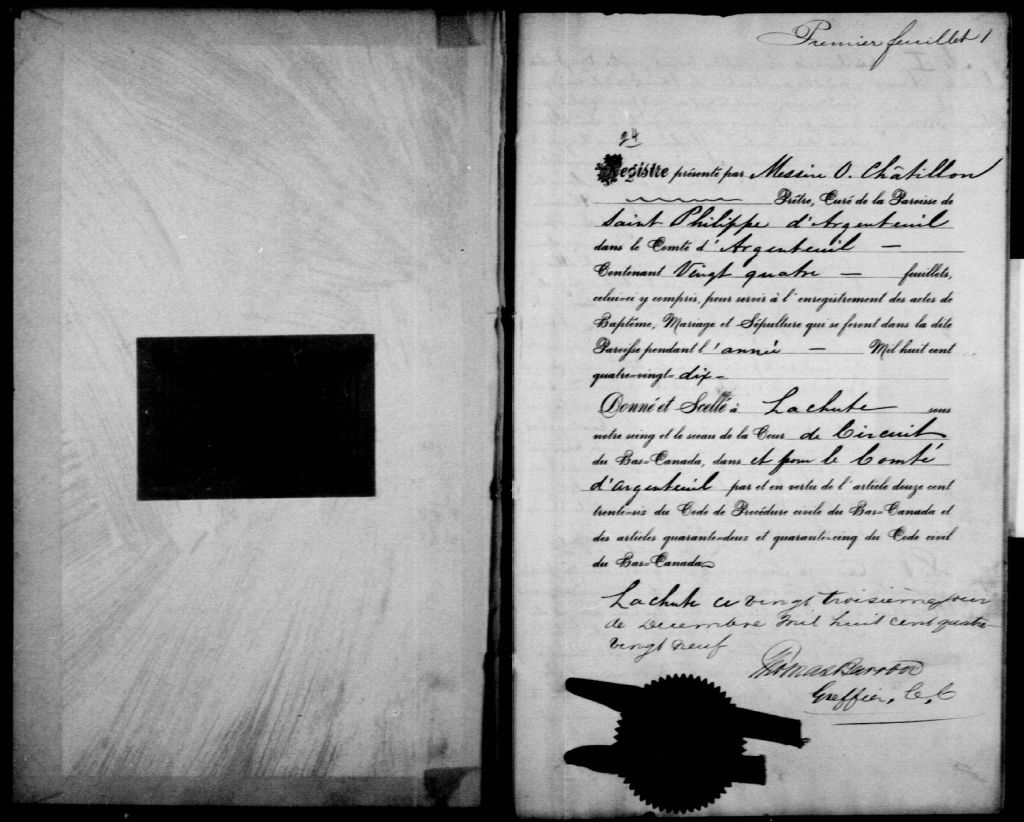 Premier feuillet 1
24
Registre présenté par Messire O. Châtillon
Prêtre, Curé de la Paroisse de
Saint Philippe d'Argenteuil
dans le Comté d'Argenteuil —
Contenant Vingt quatre — feuillets,
celui-ci y compris, pour servir à l'enregistrement des actes de
Baptême, Mariage et Sépulture qui se feront dans la dite
Paroisse pendant l'année — Mil huit cent
quatre-vingt-dix –
Donné et Scellé à Lachute sous
notre seing et le sceau de la Cour de Circuit
du Bas-Canada, dans et pour le Comté
d'argenteuil par et en vertu de l'article douze cent
trente-six du Code de Procédure civile du Bas-Canada et
des articles quarante-deux et quarante-cinq du Code civil
du Bas-Canada
Lachute ce vingt troisième jour
de Decembre mil huit cent quatre
vingt neuf
Thomas Barron
Greffier, C. C